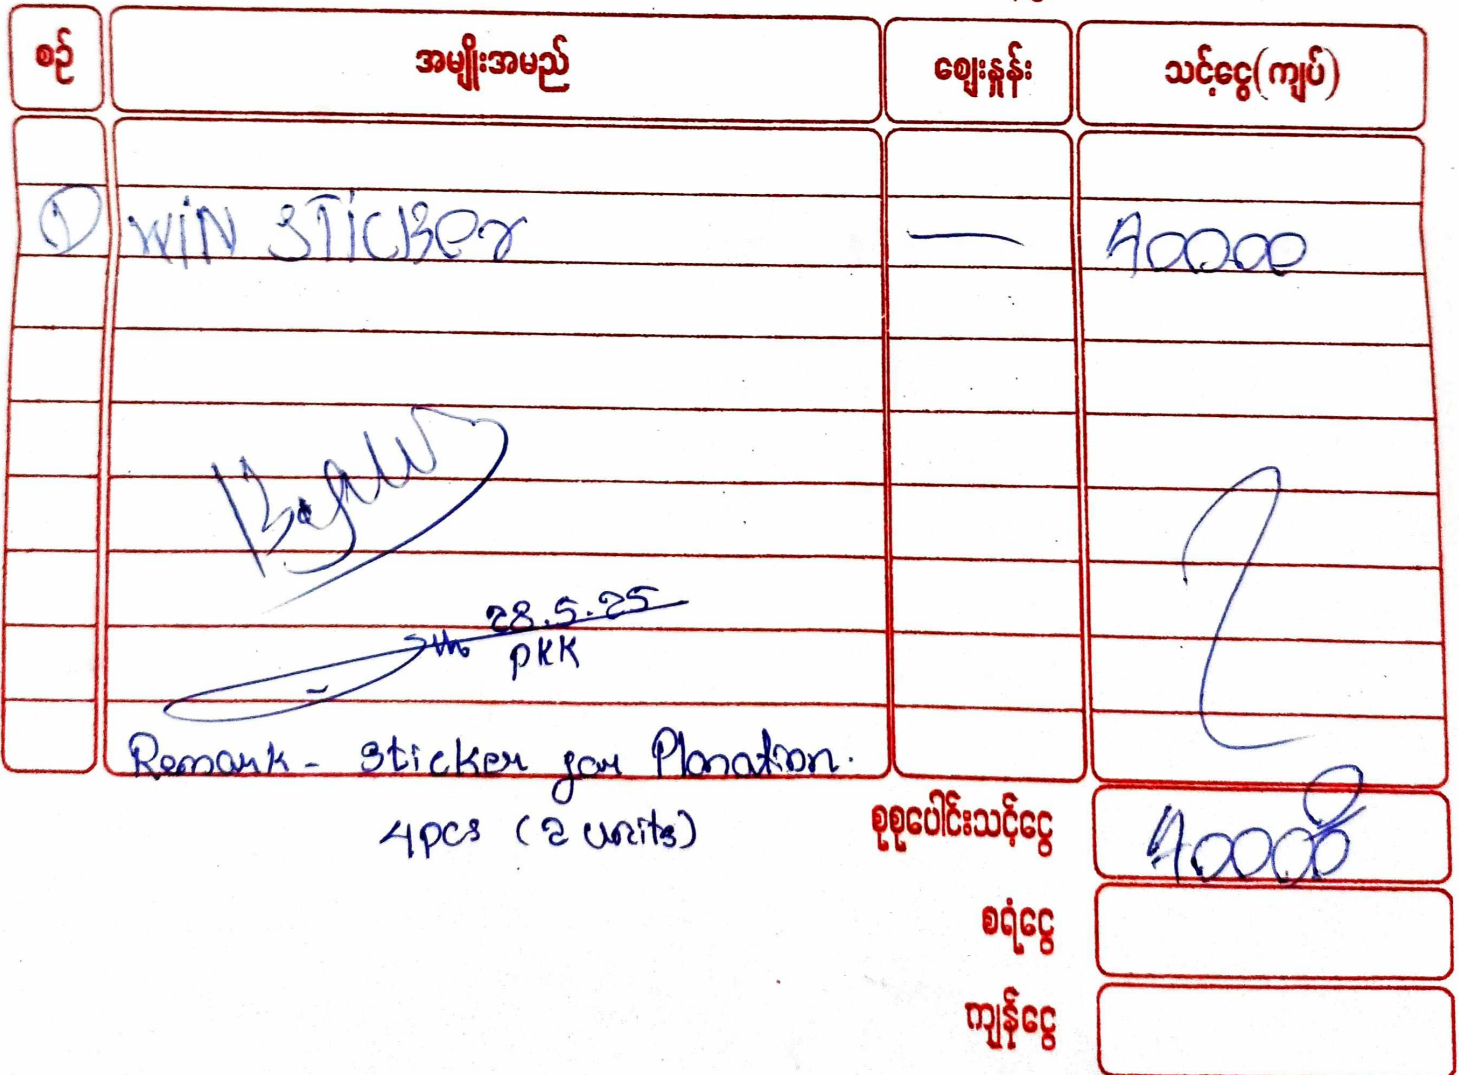 စဉ် အမျိုးအမည် ဈေးနှုန်း သင့်ငွေ(ကျပ်)
① WIN STICKER — 40000
28.5.25
PKK
Remark - Sticker for Planation.
4pcs (2 units)
စုစုပေါင်းသင့်ငွေ 40000
စရံငွေ
ကျန်ငွေ